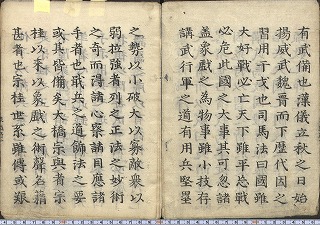 有武備也漢儀立秋之日始
揚威武魏晋而下歴代因之
習用干戈也司馬法曰國雖
大好戰必亡天下雖平忘戰
必危此國之大事其可忽諸
盖象戲之為物事雖小技存
講武行軍之道有用兵堅星
之勢以小破大以象離衆以
弱拉強者列之正法之妙術
之奇而得諸心擧諸目應諸
手者也戲兵之道飾法之要
或其皆備矣大橋宗與者宗
桂以来以象戲之術聲名籍
甚者也宗桂世系雖傳或艱